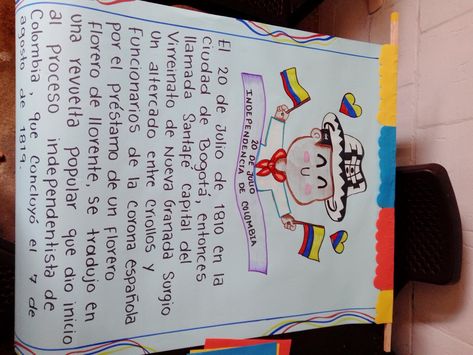 20 DE JULIO
INDEPENDENCIA DE COLOMBIA
El 20 de Julio de 1810 en la
ciudad de Bogotá, entonces
llamada Santafé capital del
Virreinato de Nueva Granada Surgio
Un altercado entre Criollos y
Funcionarios de la corona española
por el préstamo de un florero
florero de llorente, se tradujo en
una revuelta popular que dio inicio
al proceso independentista de
Colombia, que concluyó el 7 de
agosto de 1819.